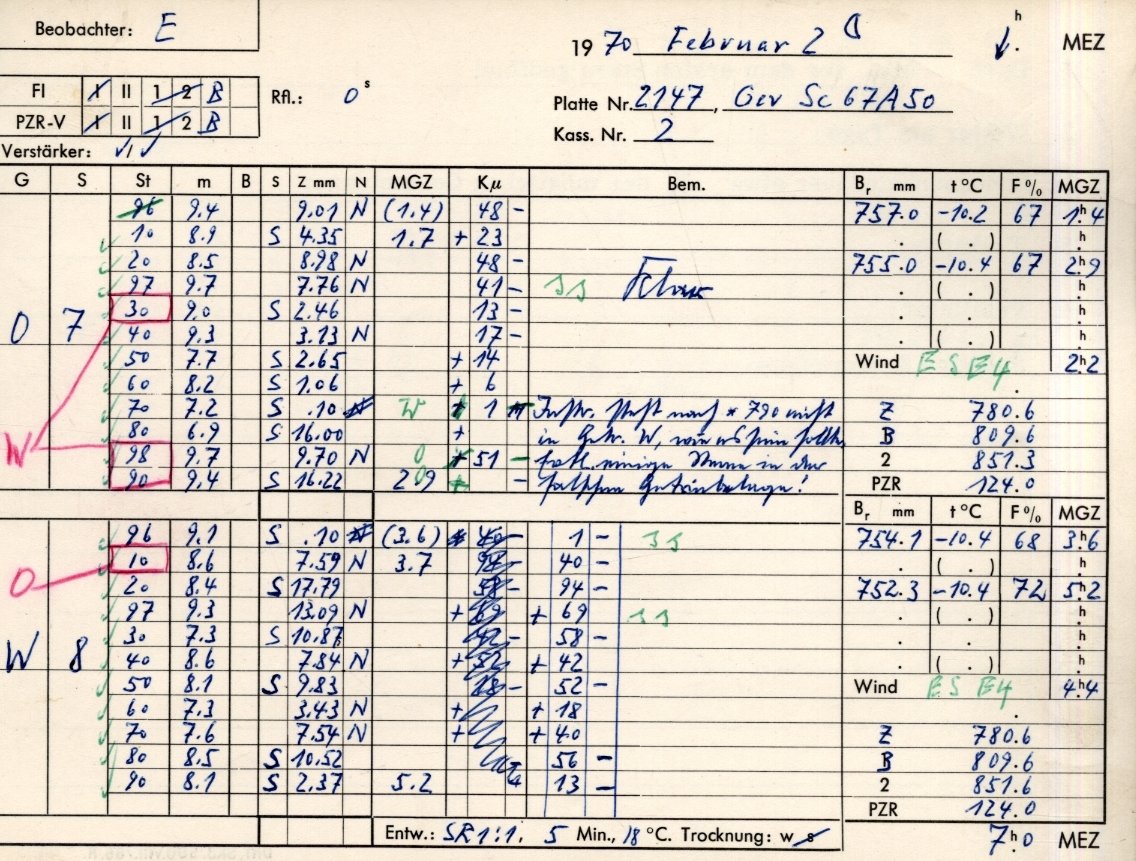 Beobachter: E
1970 Februar 2
h
MEZ
FI I II 1 2 B
PZR-V I II 1 2 B
Rfl.: 0 s
Platte Nr. 2147, Gev Sc 67A50
Kass. Nr. 2
Verstärker:
G S St m B S Z mm N MGZ Kμ Bem. Br mm t °C F % MGZ
96 9.4 9.01 N (1.4) 48 - 757.0 -10.2 67 1h4
10 8.9 S 4.35 1.7 + 23 . ( . ) h
20 8.5 8.98 N 48 - 755.0 -10.4 67 2h9
97 9.7 7.76 N 41 - . ( . ) h
30 9.0 S 2.46 13 - . . h
O 7 40 9.3 3.13 N 17 - . ( . ) h
50 7.7 S 2.65 + 14 Wind ESE4 2h2
60 8.2 S 1.06 + 6 .
70 7.2 S .10 N W + 1 Z 780.6
80 6.9 S 16.00 + in W, B 809.6
W 98 9.7 9.70 N O 51 - einige in der 2 851.3
90 9.4 S 16.22 2.9 - ! PZR 124.0
Br mm t °C F % MGZ
96 9.1 S .10 N (3.6) 40 - 1 - 754.1 -10.4 68 3h6
O 10 8.6 7.59 N 3.7 94 - 40 - . ( . ) h
20 8.4 S 17.79 58 - 94 - 752.3 -10.4 72 5h2
97 9.3 13.09 N + 69 + 69 . ( . ) h
30 7.3 S 10.87 42 - 58 - . . h
W 8 40 8.6 7.84 N + 52 + 42 . ( . ) h
50 8.1 S 9.83 18 - 52 - Wind ESE4 4h4
60 7.3 3.43 N + + 18 .
70 7.6 7.54 N + + 40 Z 780.6
80 8.5 S 10.52 56 - B 809.6
90 8.1 S 2.37 5.2 13 - 2 851.6
PZR 124.0
Entw.: SR1:1. 5 Min., 18 °C. Trocknung: w s 7h0 MEZ